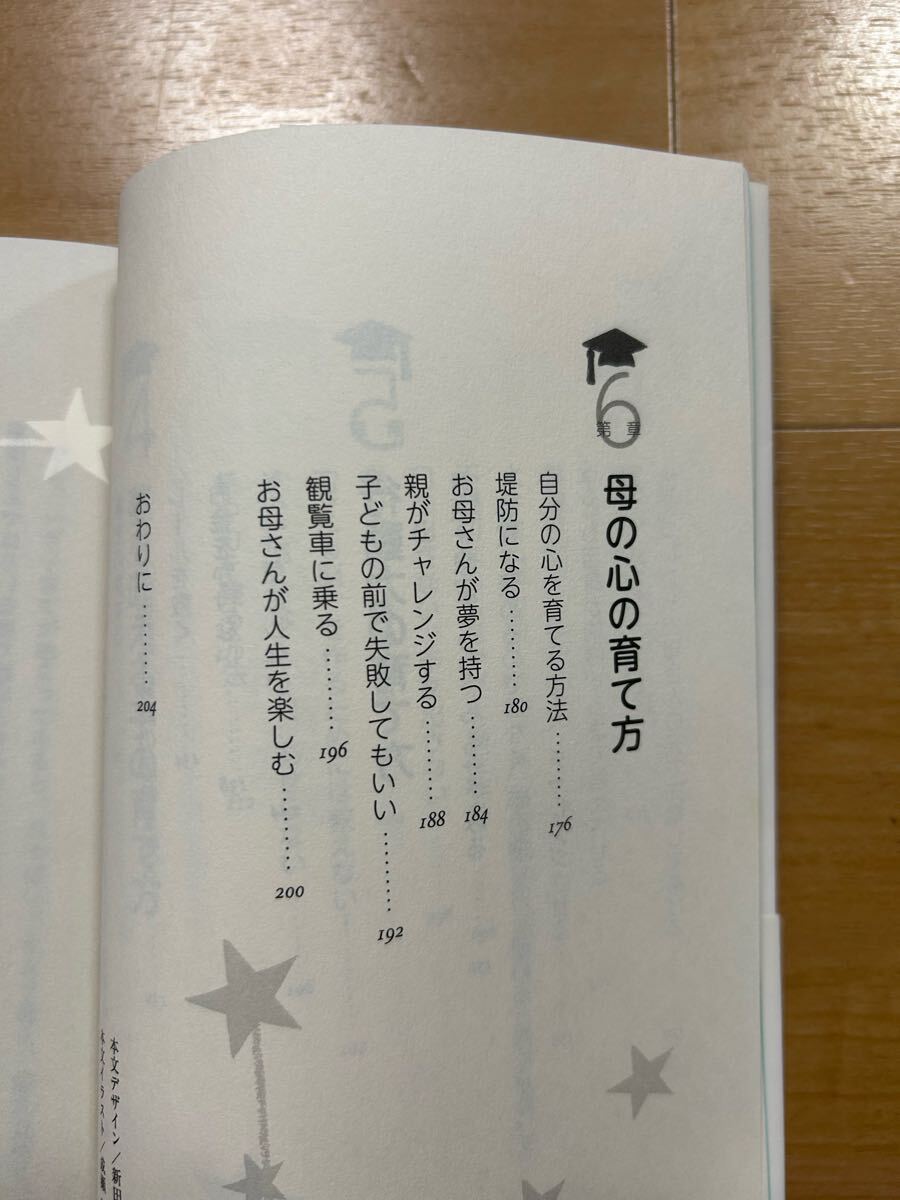 第6章
母の心の育て方
自分の心を育てる方法………176
堤防になる………180
お母さんが夢を持つ………184
親がチャレンジする………188
子どもの前で失敗してもいい………192
観覧車に乗る………196
お母さんが人生を楽しむ………200
おわりに………204
本文デザイン/新田
本文イラスト/